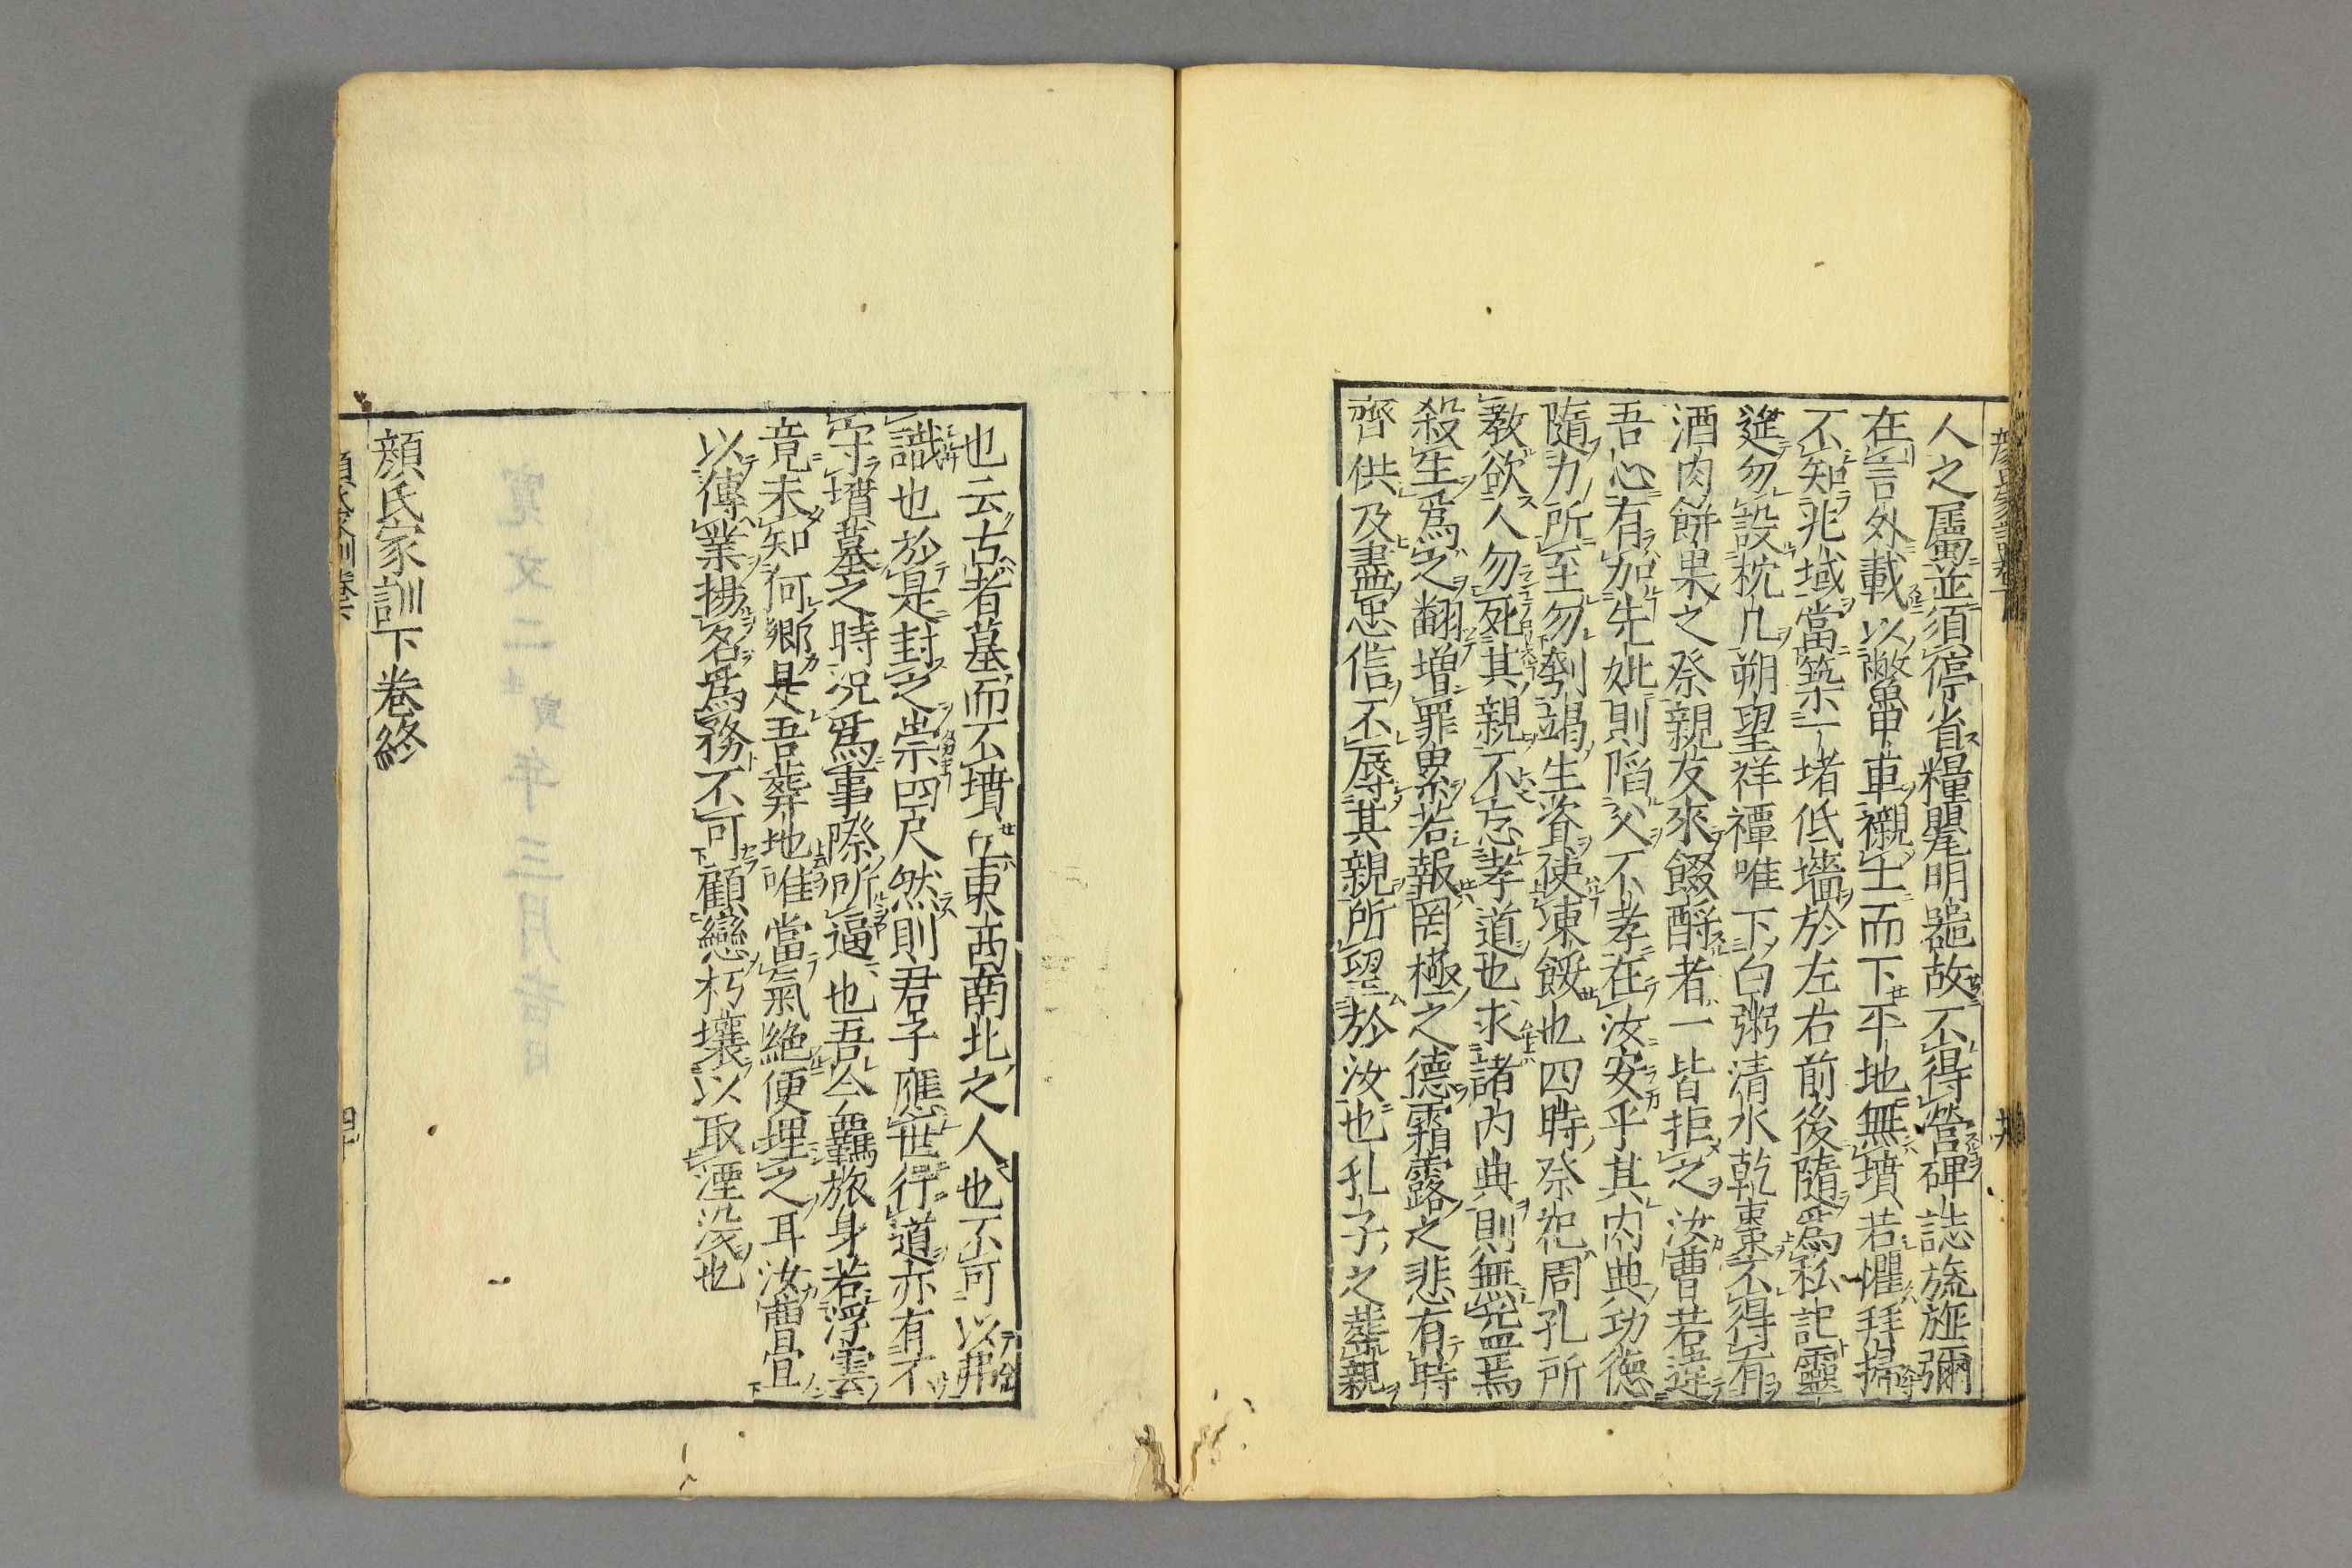 人之屬並須停省糧甖明器故不得營碑誌旒旐彌
在言外載以鼈甲車襯土而下平地無墳若懼拜掃
不知兆域當築一堵低墻於左右前後隨爲私記靈
筵勿設枕几朔望祥禫唯下白粥清水乾棗不得有
酒肉餅果之祭親友來餟酹者一皆拒之汝曹若違
吾心有加先妣則陷父不孝在汝安乎其内典功德
隨力所至勿刳竭生資使凍餒也四時祭祀周孔所
教欲人勿死其親不忘孝道也求諸内典則無益焉
殺生爲之翻増罪累若報罔極之德霜露之悲有時
齊供及盡忠信不辱其親所望於汝也孔子之葬親
也云古者墓而不墳丘東西南北之人也不可以弗
識也於是封之崇四尺然則君子應世行道亦有不
守墳墓之時況爲事際所逼也吾今羈旅身若浮雲
竟未知何郷是吾葬地唯當氣絶便埋之耳汝曹宜
以傳業揚名爲務不可顧戀朽壤以取湮没也
顔氏家訓下卷終